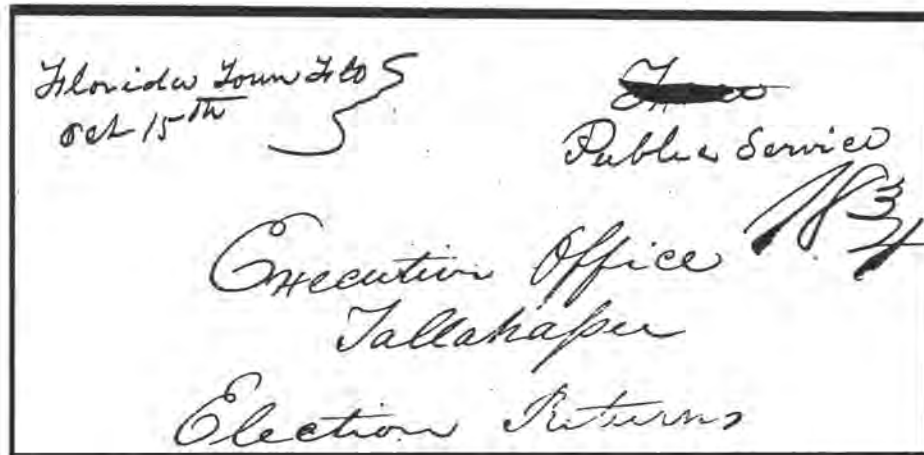 Florida Town Flo
Oct 15th
Public Service
18 3/4
Executive Office
Tallahassee
Election Returns